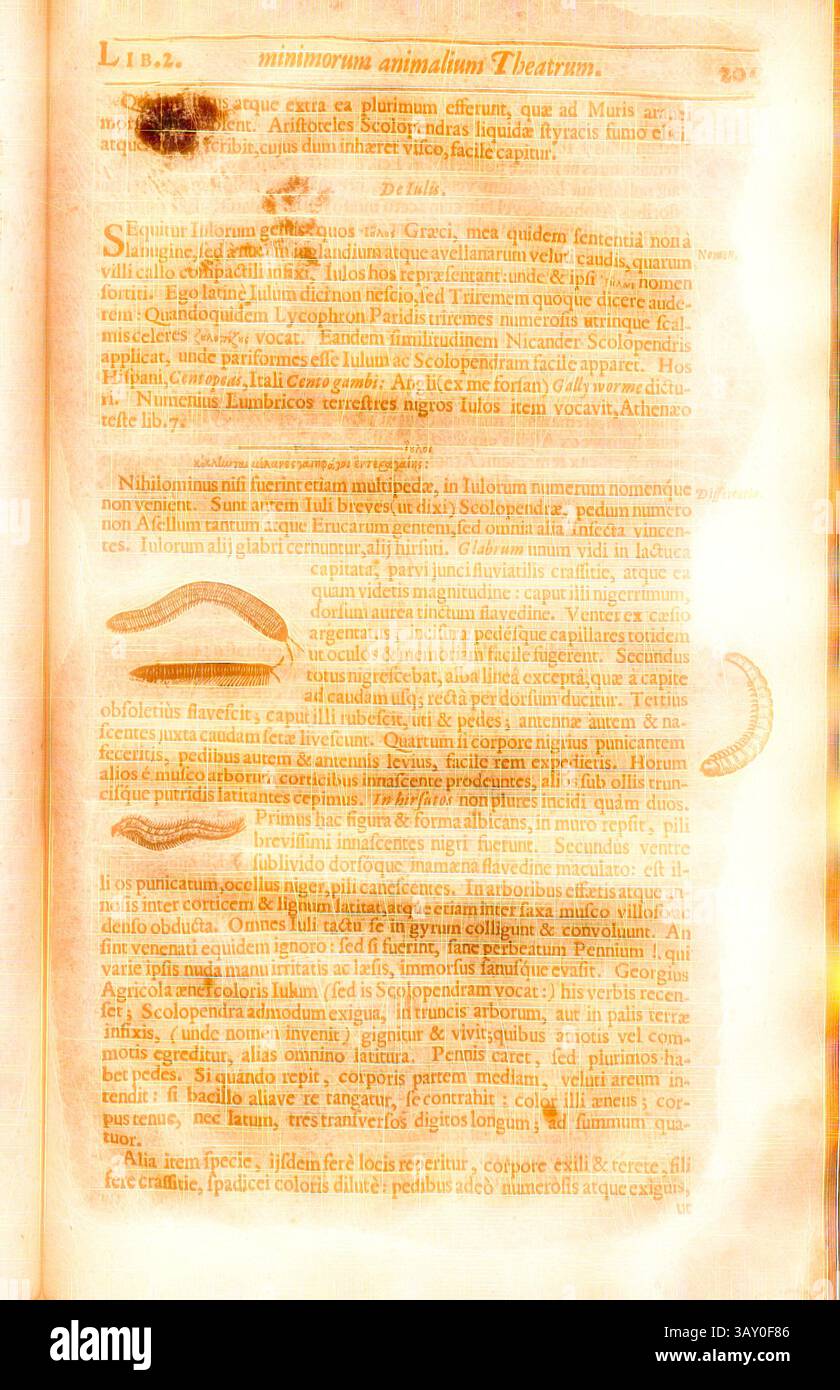 LIB.2. minimorum animalium Theatrum.
atque extra ea plurimum efferunt, quæ ad Muris
olent. Aristoteles Scolopendras liquidæ styracis fumo
atque scribit, cujus dum inhæret visco, facile capitur.
De Iulis.
SEquitur Iulorum genus: quos ἴουλοι Græci, mea quidem sententiâ non à
lanugine, sed à nucum juglandium atque avellanarum velut caudis, quarum
Nomen.
villi callo compactili infixi, Iulos hos repræsentant: unde & ipsi nomen
sortiti. Ego latinè Iulum dici non nescio, sed Triremem quoque dicere aude-
rem: Quandoquidem Lycophron Paridis triremes numerosis utrinque scal-
mis celeres vocat. Eandem similitudinem Nicander Scolopendris
applicat, unde pariformes esse Iulum ac Scolopendram facile apparet. Hos
Hispani, Centopeas, Itali Cento gambi: Angli (ex me forsan) Gally worme dictu-
ri. Numenius Lumbricos terrestres nigros Iulos item vocavit, Athenæo
teste lib. 7.
Nihilominus nisi fuerint etiam multipedæ, in Iulorum numerum nomenque
Differentia.
non venient. Sunt autem Iuli breves (ut dixi) Scolopendræ, pedum numero
non Asellum tantum atque Erucarum gentem, sed omnia alia insecta vincen-
tes. Iulorum alij glabri cernuntur, alij hirsuti. Glabrum unum vidi in lactuca
capitata, parvi junci fluviatilis crassitie, atque ea
quam videtis magnitudine: caput illi nigerrimum,
dorsum aurea tinctum flavedine. Venter ex cæsio
argentatus, incisuræ pedésque capillares totidem
ut oculos & memoriam facile fugerent. Secundus
totus nigrescebat, alba lineâ exceptâ, quæ à capite
ad caudam usq; rectà per dorsum ducitur. Tertius
obsoletiùs flavescit; caput illi rubescit, uti & pedes; antennæ autem & na-
scentes juxta caudam setæ livescunt. Quartum si corpore nigrius punicantem
feceritis, pedibus autem & antennis levius, facile rem expedietis. Horum
alios è musco arborum corticibus innascente prodeuntes, alios sub ollis trun-
cisque putridis latitantes cepimus. In hirsutos non plures incidi quám duos.
Primus hac figura & forma albicans, in muro repsit, pili
brevissimi innascentes nigri fuerunt. Secundus ventre
sublivido dorsóque inamæna flavedine maculato: est il-
li os punicatum, ocellus niger, pili canescentes. In arboribus effœtis atque an-
nosis inter corticem & lignum latitat, atque etiam inter saxa musco villoso
denso obducta. Omnes Iuli tactu se in gyrum colligunt & convoluunt. An
sint venenati equidem ignoro: sed si fuerint, sane perbeatum Pennium!, qui
varie ipsis nuda manu irritatis ac læsis, immorsus sanusque evasit. Georgius
Agricola ænei coloris Iulum (sed is Scolopendram vocat:) his verbis recen-
set; Scolopendra admodum exigua, in truncis arborum, aut in palis terræ
infixis, (unde nomen invenit) gignitur & vivit; quibus amotis vel com-
motis egreditur, alias omnino latitura. Pennis caret, sed plurimos ha-
bet pedes. Si quándo repit, corporis partem mediam, veluti arcum in-
tendit: si bacillo aliave re tangatur, se contrahit: color illi æneus; cor-
pus tenue, nec latum, tres transversos digitos longum; ad summum qua-
tuor.
Alia item specie, ijsdem ferè locis reperitur, corpore exili & terete, fili
fere crassitie, spadicei coloris dilutè: pedibus adeò numerosis atque exiguis,
ut
alamy
Image ID: 3AY0F86
www.alamy.com